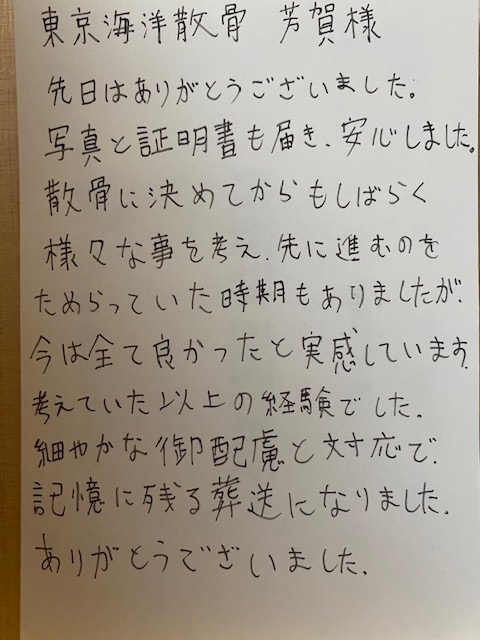 東京海洋散骨 芳賀様
先日はありがとうございました。
写真と証明書も届き、安心しました。
散骨に決めてからもしばらく
様々な事を考え、先に進むのを
ためらっていた時期もありましたが、
今は全て良かったと実感しています。
考えていた以上の経験でした。
細やかな御配慮と対応で、
記憶に残る葬送になりました。
ありがとうございました。